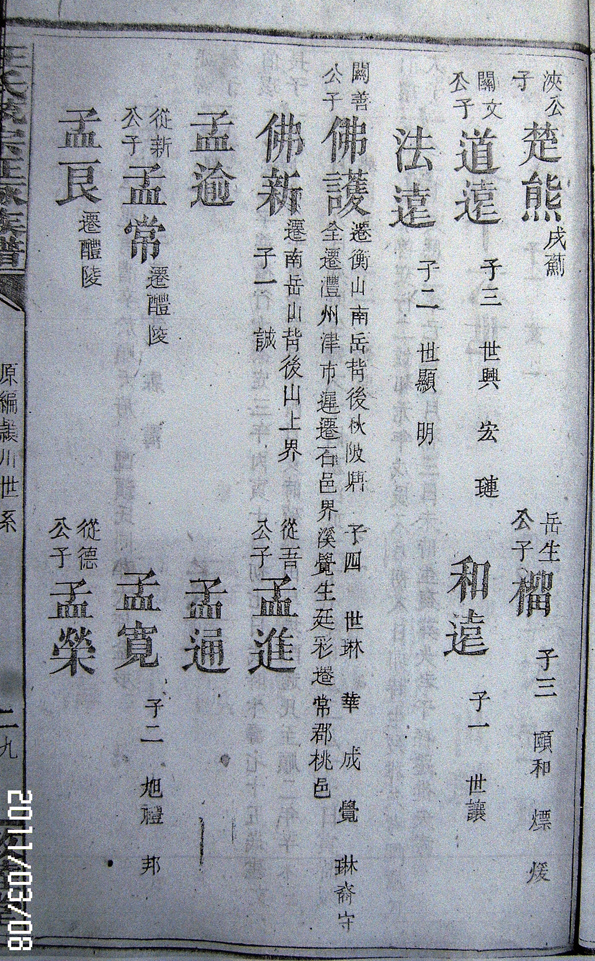 浹公子
楚熊
戌薊
岳生公子
榴
子三 頤和 熛 煖
關文公子
道遠
子三 世興 宏 璉
和遠
子一 世讓
法遠
子二 世顯 明
關善公子
佛護
遷衡山南岳背後秋陂 子四 世琳 華 成 覺 琳裔守
全遷澧州津市遲遷石邑界溪覺生廷彩遷常郡桃邑
佛新
遷南岳山背後山上界
子一 誠
從吾公子
孟進
孟逾
孟通
從新公子
孟常
遷醴陵
孟寬
子二 旭禮 邦
孟良
遷醴陵
從德公子
孟榮
族譜
原編 川世系
二九
2011/03/08